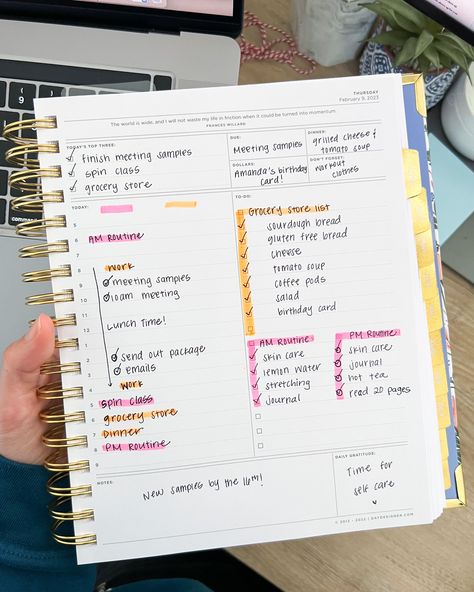 THURSDAY
February 9, 2023
The world is wide, and I will not waste my life in friction when it could be turned into momentum.
FRANCES WILLARD
TODAY'S TOP THREE:
finish meeting samples
spin class
grocery store
DUE:
Meeting samples
DINNER:
grilled cheese &
tomato soup
DOLLARS:
Amanda's birthday
card!
DON'T FORGET:
workout
clothes
TODAY:
5
6 AM Routine
7
8 work
9 meeting samples
10 10am meeting
11
12 Lunch Time!
1
2 send out package
3 emails
4 work
5 spin class
6 grocery store
7 Dinner
8 PM Routine
9
TO-DO:
Grocery store list
sourdough bread
gluten free bread
cheese
tomato soup
coffee pods
salad
birthday card
AM Routine
skin care
lemon water
stretching
journal
PM Routine
skin care
journal
hot tea
read 20 pages
NOTES:
New samples by the 16th!
DAILY GRATITUDE:
Time for
self care
© 2012 - 2022 | DAYDESIGNER.COM